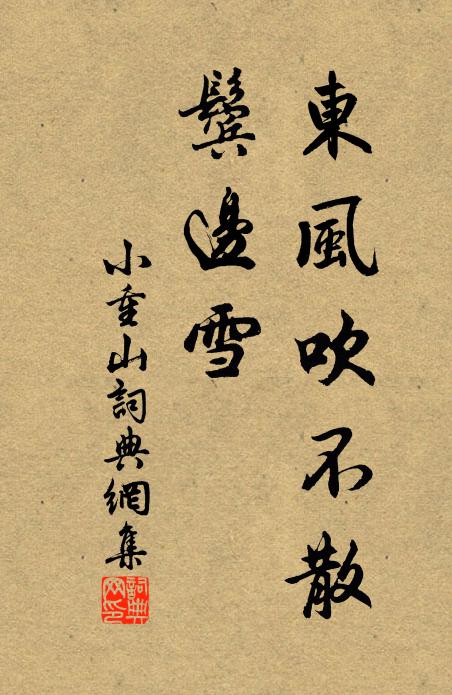 東風吹不散
鬢邊雪
小重山詞典網集
詞典網印